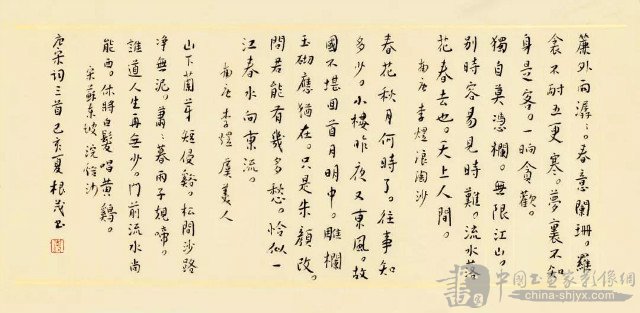 簾外雨潺々。春意闌珊。羅
衾不耐五更寒。夢裏不知
身是客。一晌貪歡。
獨自莫憑欄。無限江山。
別時容易見時難。流水落
花春去也。天上人間。
南唐 李煜 浪淘沙
春花秋月何時了。往事知
多少。小樓昨夜又東風。故
國不堪回首月明中。雕欄
玉砌應猶在。只是朱顏改。
問君能有幾多愁。恰似一
江春水向東流。
南唐 李煜 虞美人
山下蘭芽短浸谿。松間沙路
净無泥。蕭々暮雨子規啼。
誰道人生再無少。門前流水尚
能西。休將白髮唱黄鷄。
宋 蘇東坡 浣谿沙
唐宋词三首己亥夏根茂书
書
中國书画家影像網
china-shjyx.com